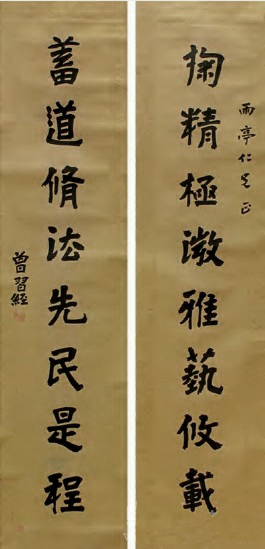 雨亭仁兄正
掬精極微雅藝攸載
蓄道脩法先民是程
曾習經